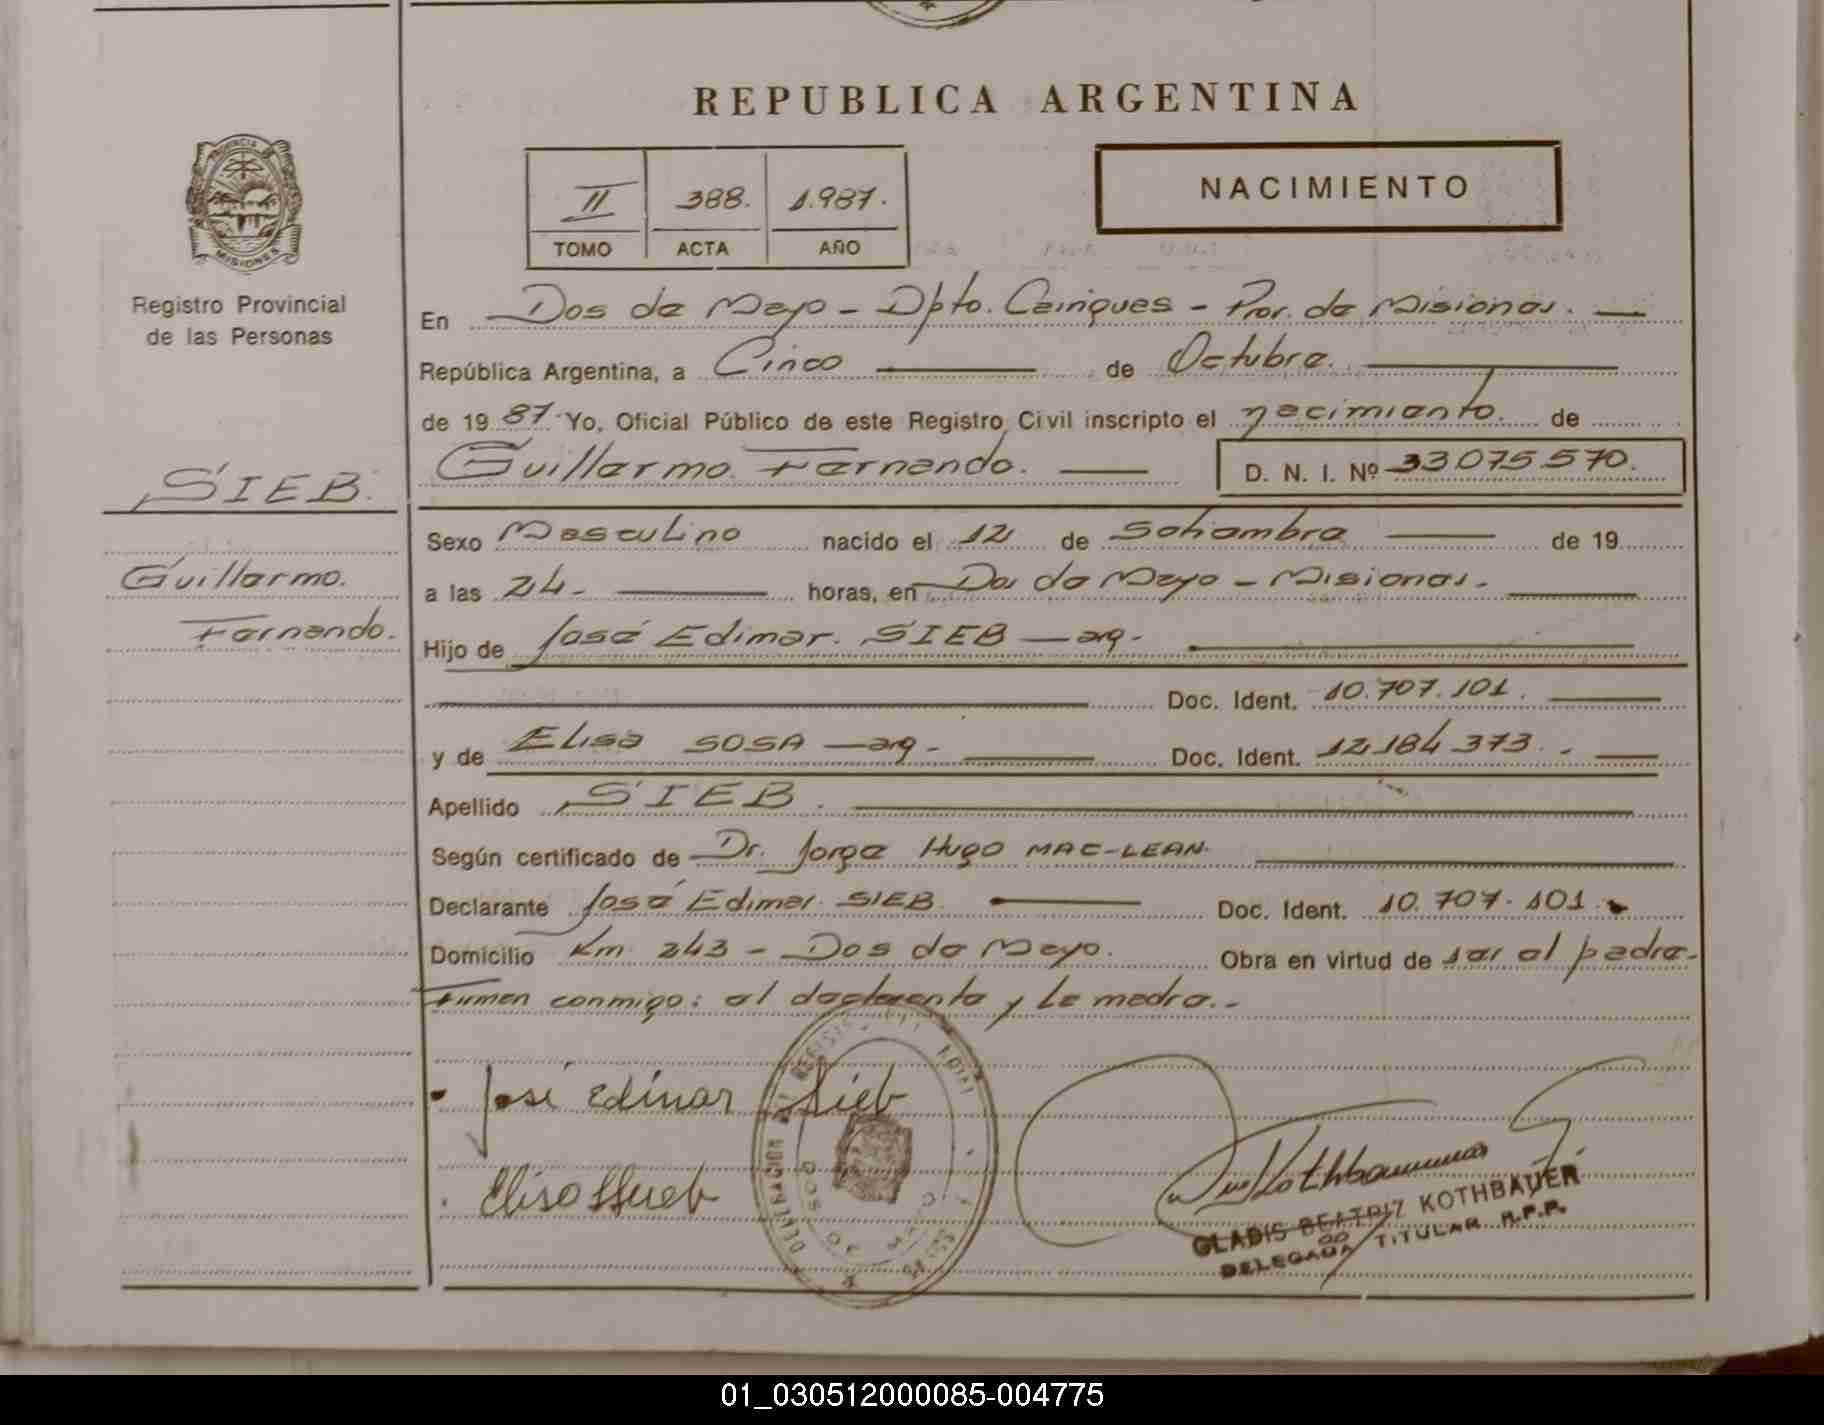 REPUBLICA ARGENTINA
PROVINCIA DE
MISIONES
Registro Provincial
de las Personas
II 388. 1.987.
TOMO ACTA AÑO
NACIMIENTO
En Dos de Mayo - Dpto. Cainguas - Prov. de Misiones.
República Argentina, a Cinco de Octubre.
de 19 87. Yo, Oficial Público de este Registro Civil inscripto el nacimiento. de
Guillermo Fernando. D. N. I. Nº 33.075.570.
SIEB.
Guillermo.
Fernando.
Sexo Masculino nacido el 12 de Setiembre de 19
a las 24- horas, en Dos de Mayo - Misiones.
Hijo de José Edimar. SIEB - arg.
Doc. Ident. 10.707.101.
y de Elisa SOSA - arg. Doc. Ident. 12.184.373.
Apellido SIEB.
Según certificado de Dr. Jorge Hugo MAC-LEAN.
Declarante José Edimar SIEB. Doc. Ident. 10.707.101.
Domicilio Km 243 - Dos de Mayo. Obra en virtud de ser el padre.
Firman conmigo: el declarante y la madre.-
José Edimar Sieb
DOS DE MAYO
GLADIS BEATRIZ KOTHBAUER
DELEGADA TITULAR R.P.P.
01_030512000085-004775